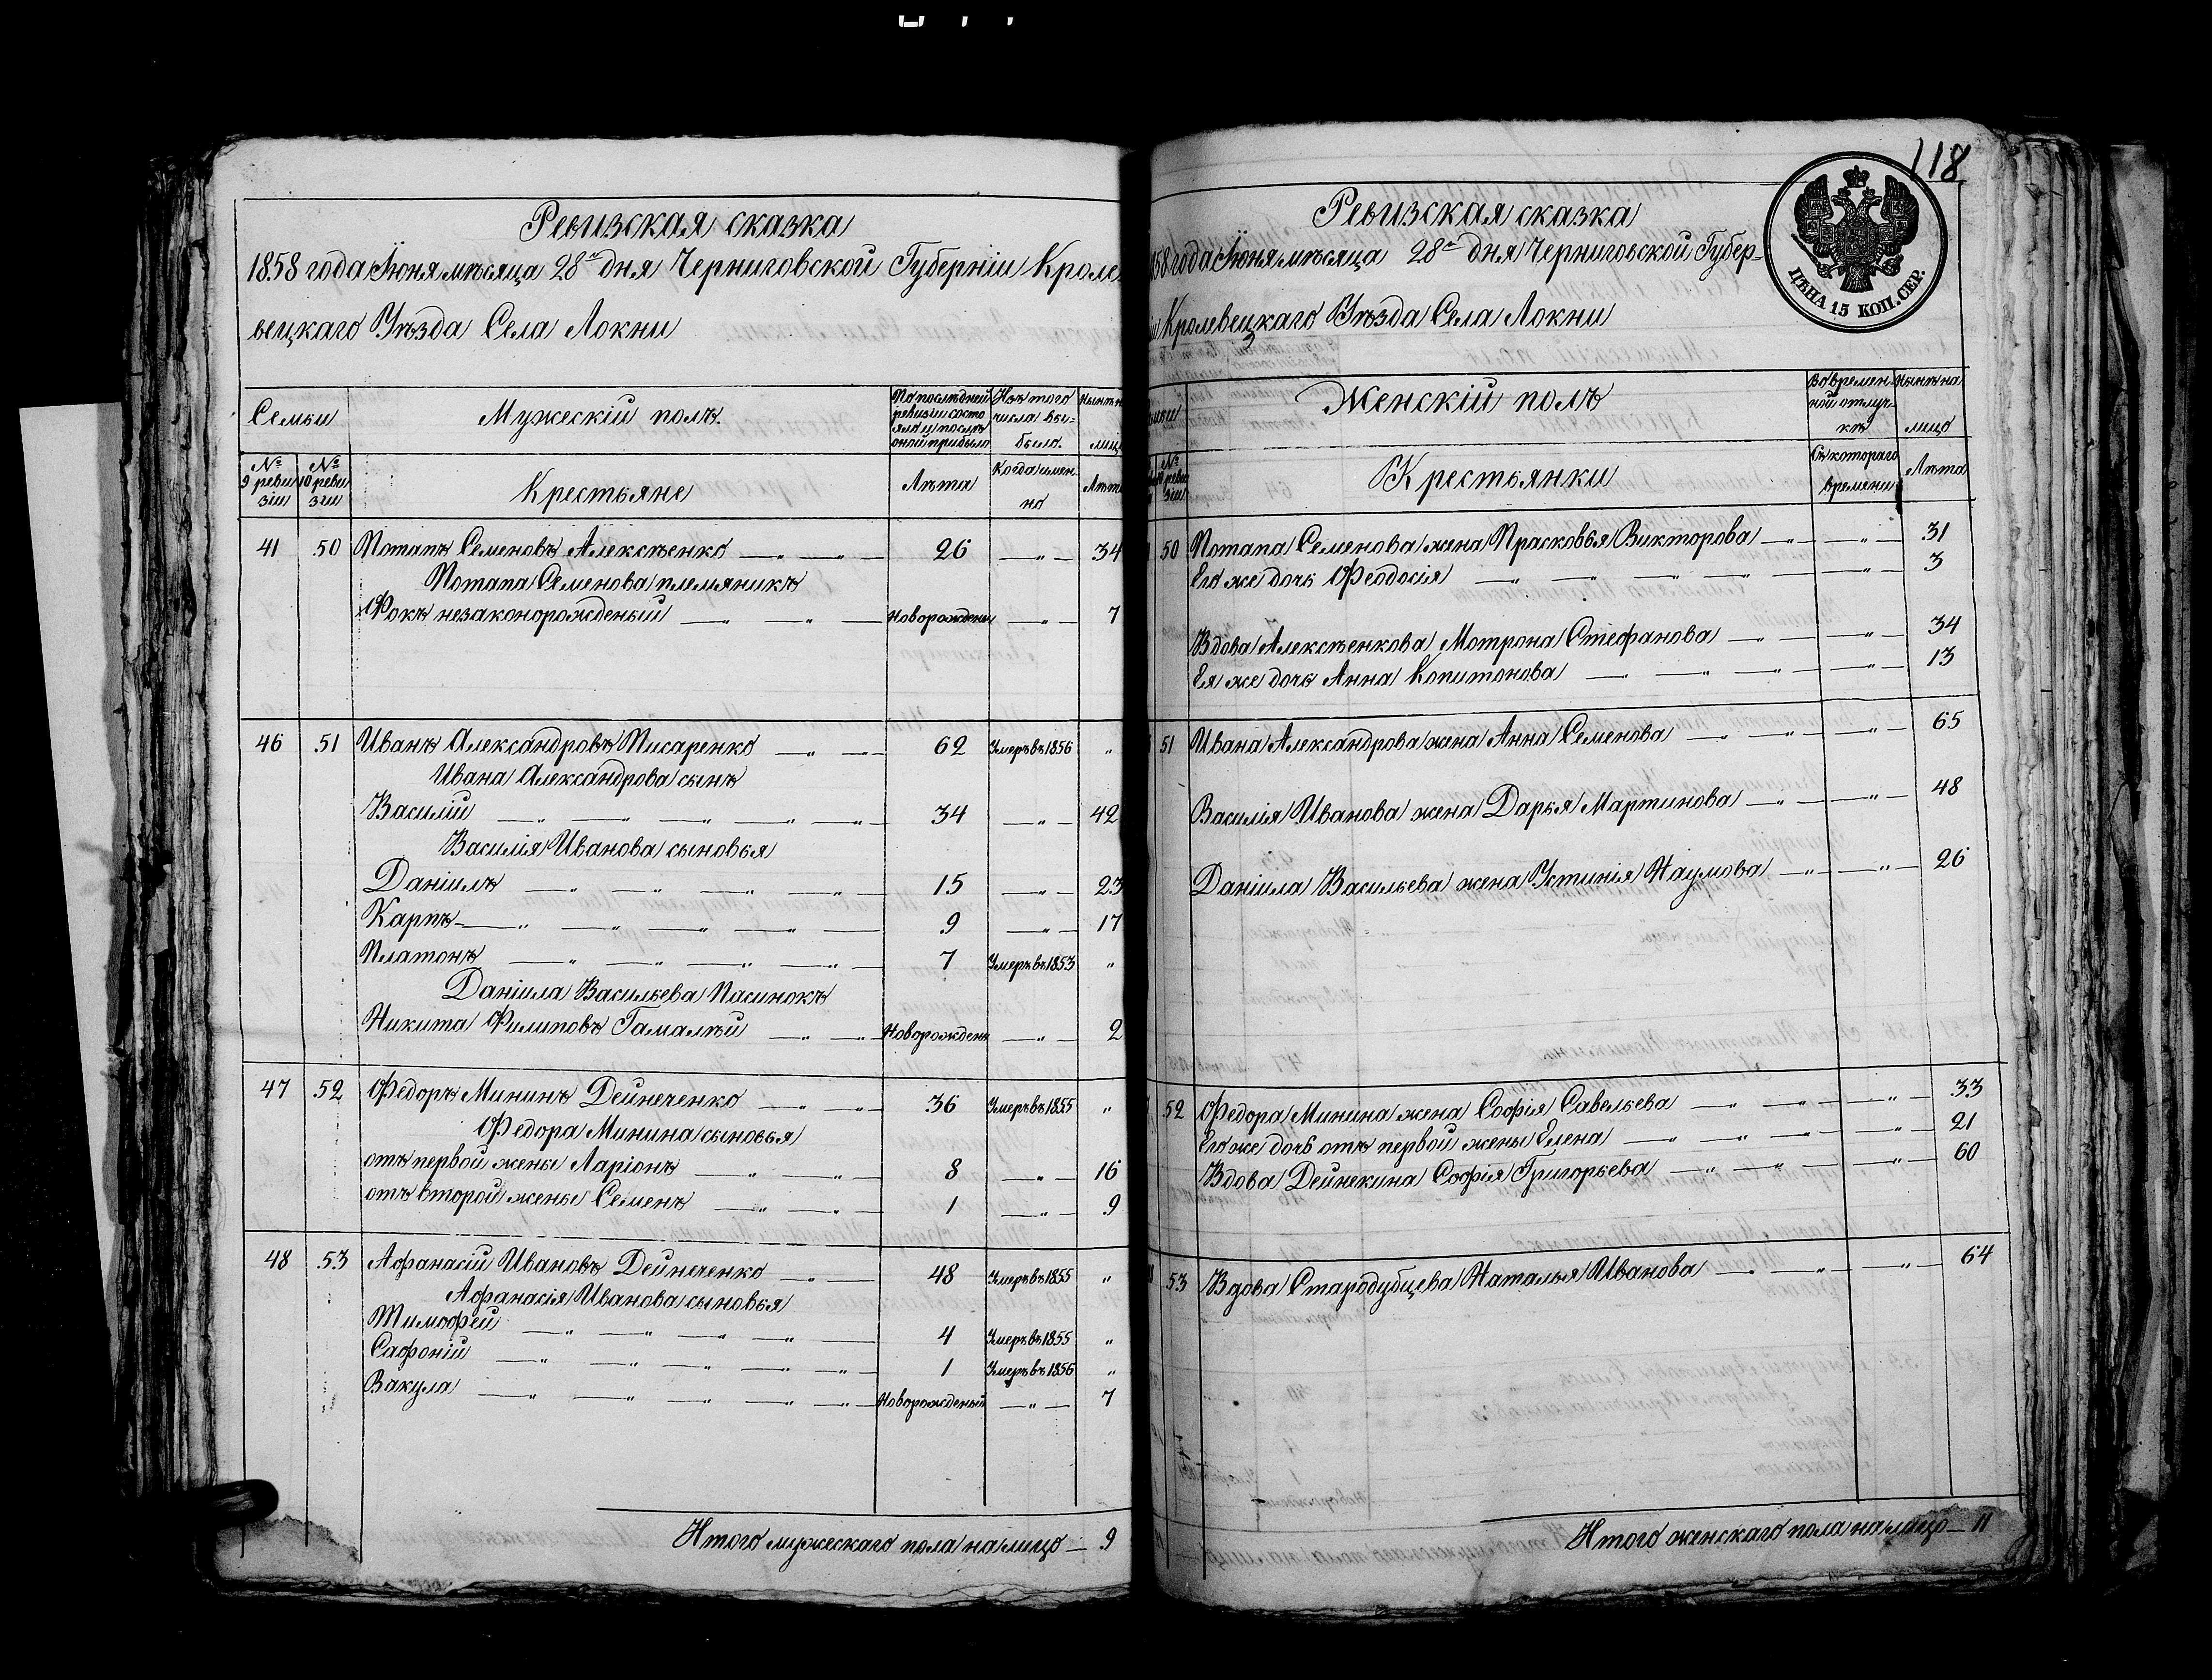 Ревизская сказка
1858 года Іюня мѣсяца 28го дня Черниговской Губерніи Кроле-
вецкаго Уѣзда Села Локни
Семьи
Мужескій полъ.
По послѣдней ревизіи состояло и послѣ оной прибыло
Изъ того числа вы-было.
Нынѣ
лицо
№ 9 ревизіи
№ 10 ревизіи
Крестьяне
Лѣта
Когда имен-но
Лѣта
41 50 Потапъ Семеновъ Алексѣенко — „ — „ — 26 — „ — 34
Потапа Семенова племяникъ
Фокъ незаконорожденый — „ — „ — Новорожденый — „ — 7
46 51 Иванъ Александровъ Писаренко — „ — „ — 62 Умеръ въ 1856 „
Ивана Александрова сынъ
Василій — „ — „ — „ — „ — „ — 34 — „ — 42
Василія Иванова сыновья
Даніилъ — „ — „ — „ — „ — 15 — „ — 23
Карпъ — „ — „ — „ — „ — 9 — „ — 17
Платонъ — „ — „ — „ — „ — 7 Умеръ въ 1853 „
Даніила Васильева Пасинокъ
Никита Филиповъ Гамалѣй — „ — „ — Новорожденъ — „ — 2
47 52 Федоръ Мининъ Дейнеченко — „ — „ — 36 Умеръ въ 1855 „
Федора Минина сыновья
отъ первой жены Ларіонъ — „ — „ — 8 — „ — 16
отъ второй жены Семенъ — „ — „ — 1 — „ — 9
48 53 Афанасій Ивановъ Дейнеченко — „ — 48 Умеръ въ 1855 „
Афанасія Иванова сыновья
Тимофей — „ — „ — „ — „ — 4 Умеръ въ 1855 „
Сафоній — „ — „ — „ — „ — „ — 1 Умеръ въ 1856 „
Вакула — „ — „ — „ — „ — „ — Новорожденый — „ — 7
Итого мужескаго пола на лицо — 9
118
ЦѢНА 15 КОП. СЕР.
Ревизская сказка
58 года Іюня мѣсяца 28го дня Черниговской Губер-
іи Кролевецкаго Уѣзда Села Локни
Женскій полъ
Во времен-ной отлуч-кѣ
Нынѣ на лицо
№ 10 ревизіи
Крестьянки
Съ котораго времени
Лѣта
50 Потапа Семенова жена Прасковья Викторова — „ — „ — 31
Его же дочь Феодосія — „ — „ — „ — „ — „ — 3
Вдова Алексѣенкова Мотрона Стефанова — „ — „ — 34
Ея же дочь Анна Копитонова — „ — „ — „ — „ — 13
51 Ивана Александрова жена Анна Семенова — „ — „ — „ — 65
Василія Иванова жена Дарья Мартинова — „ — „ — 48
Даніила Васильева жена Устинія Наумова — „ — „ — 26
52 Федора Минина жена Софія Савельева — „ — „ — „ — 33
Его же дочь отъ первой жены Елена — „ — „ — „ — 21
Вдова Дейнекина Софія Григорьева — „ — „ — „ — 60
53 Вдова Стародубцева Наталья Иванова — „ — „ — „ — 64
Итого женскаго пола на лицо — 11